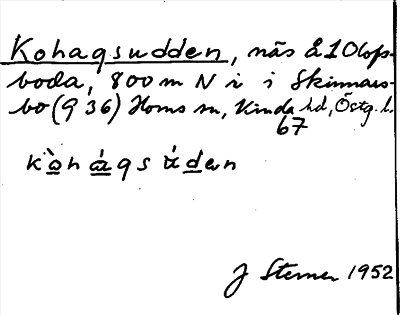 Kohagsudden, näs å 1 Olofs-
boda, 800 m N i i Skinnars-
bo (9 36) Horns sn, Kinda hd, Östg. l.
67
kòhágsúden
J Sterner 1952